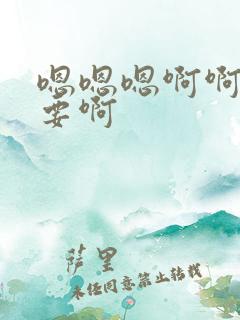 嗯嗯嗯啊啊
要啊
萨里
未经同意禁止转载